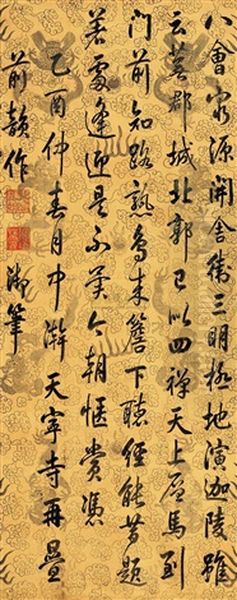 八會窮源開舍衛三明極地演迦陵雖
云蕪郡城北郭已以四禪天上層馬到
門前知路熟鳥來簷下聽經能昔題
著處逢迎是不羡今朝愜賞憑
乙酉仲春月中澣天寧寺再疊
前韻作 御筆